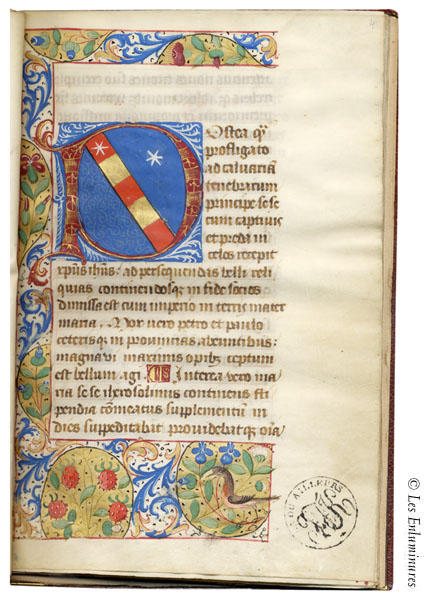 Postea qͥ
profligato
ad caluariā
tenebrarum
principe sese
cum captiuis
et preda in
celos recepit
xpus ihus: ad persequendas belli reli
quias continendosqꝫ in fide socios
dimissa est cum imperio in terris mater
maria. Nor uero petro et paulo
ceterisqꝫ in prouincias abeuntibus:
magna ui maximis opibꝫ ceptum
est bellum agi. Is Interea uero ma
ria se se iherosolimis continens sti
pendia cōmeatus supplementū in
dies suppeditabat prouidebatqꝫ oīa
DU AILLEURS
© Les Enluminures